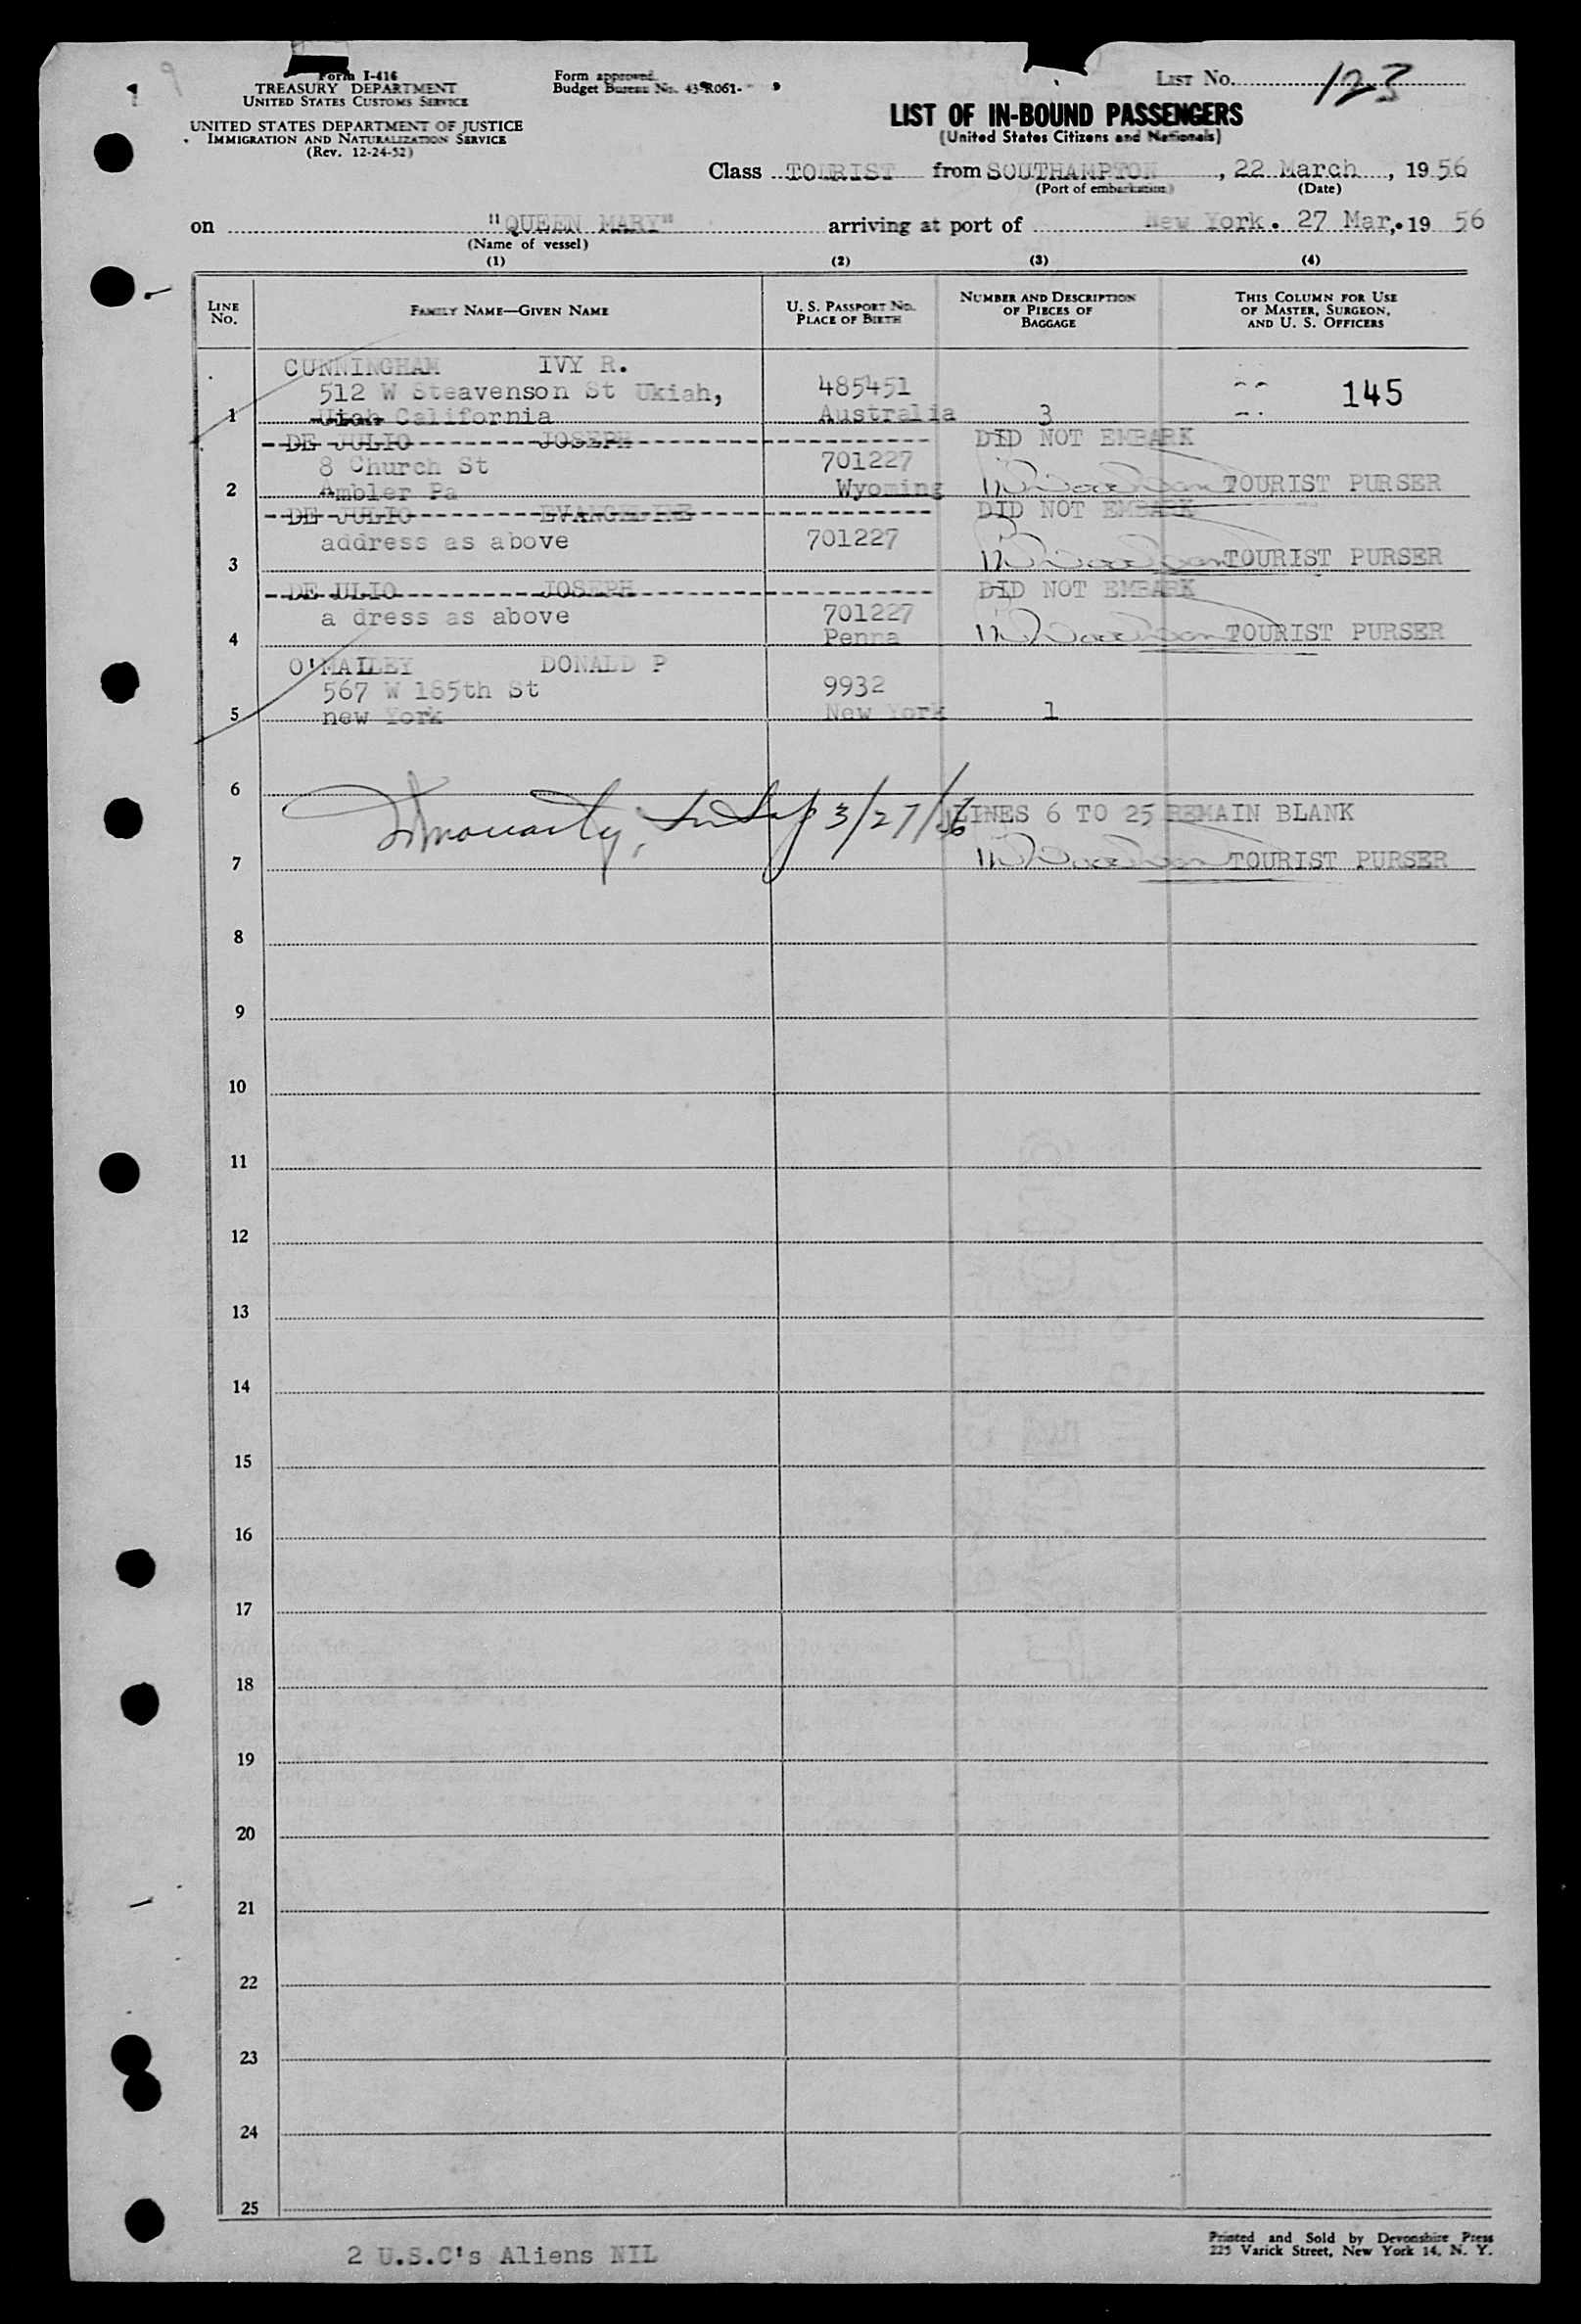 Form I-416
TREASURY DEPARTMENT
UNITED STATES CUSTOMS SERVICE
UNITED STATES DEPARTMENT OF JUSTICE
IMMIGRATION AND NATURALIZATION SERVICE
(Rev. 12-24-52)
Form approved.
Budget Bureau No. 43-R061-
LIST No. 123
LIST OF IN-BOUND PASSENGERS
(United States Citizens and Nationals)
Class TOURIST from SOUTHAMPTON, 22 March, 19 56
(Port of embarkation) (Date)
on "QUEEN MARY" arriving at port of New York. 27 Mar, 19 56
(Name of vessel)
(1) (2) (3) (4)
LINE No. FAMILY NAME—GIVEN NAME U. S. PASSPORT No. PLACE OF BIRTH NUMBER AND DESCRIPTION OF PIECES OF BAGGAGE THIS COLUMN FOR USE OF MASTER, SURGEON, AND U. S. OFFICERS
CUNNINGHAM IVY R.
512 W Steavenson St Ukiah, 485451 145
1 Utah California Australia 3
DE JULIO JOSEPH DID NOT EMBARK
8 Church St 701227
2 Ambler Pa Wyoming TOURIST PURSER
DE JULIO EVANGELINE DID NOT EMBARK
address as above 701227
3 TOURIST PURSER
DE ULIO JOSEPH DID NOT EMBARK
a dress as above 701227
4 Penna TOURIST PURSER
O'MAILEY DONALD P
567 W 165th St 9932
5 new York New York 1
6
3/27/56 LINES 6 TO 25 REMAIN BLANK
7 TOURIST PURSER
8
9
10
11
12
13
14
15
16
17
18
19
20
21
22
23
24
25
2 U.S.C's Aliens NIL
Printed and Sold by Devonshire Press
225 Varick Street, New York 14, N. Y.